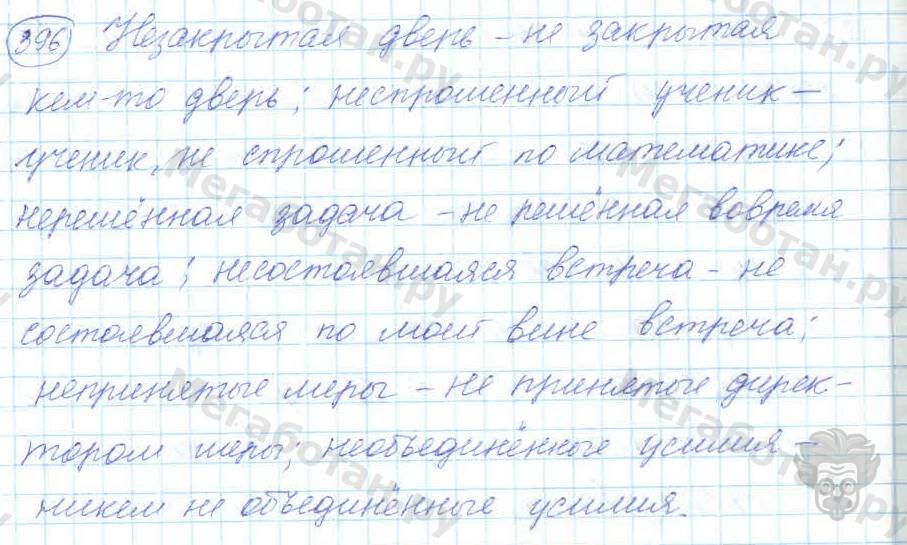 396 Незакрытая дверь - не закрытая
кем-то дверь; неспрошенный ученик -
ученик, не спрошенный по математике;
нерешённая задача - не решённая вовремя
задача; несостоявшаяся встреча - не
состоявшаяся по моей вине встреча;
непринятые меры - не принятые дирек-
тором меры; необъединённые усилия -
никем не объединённые усилия.
Мегаботан.ру